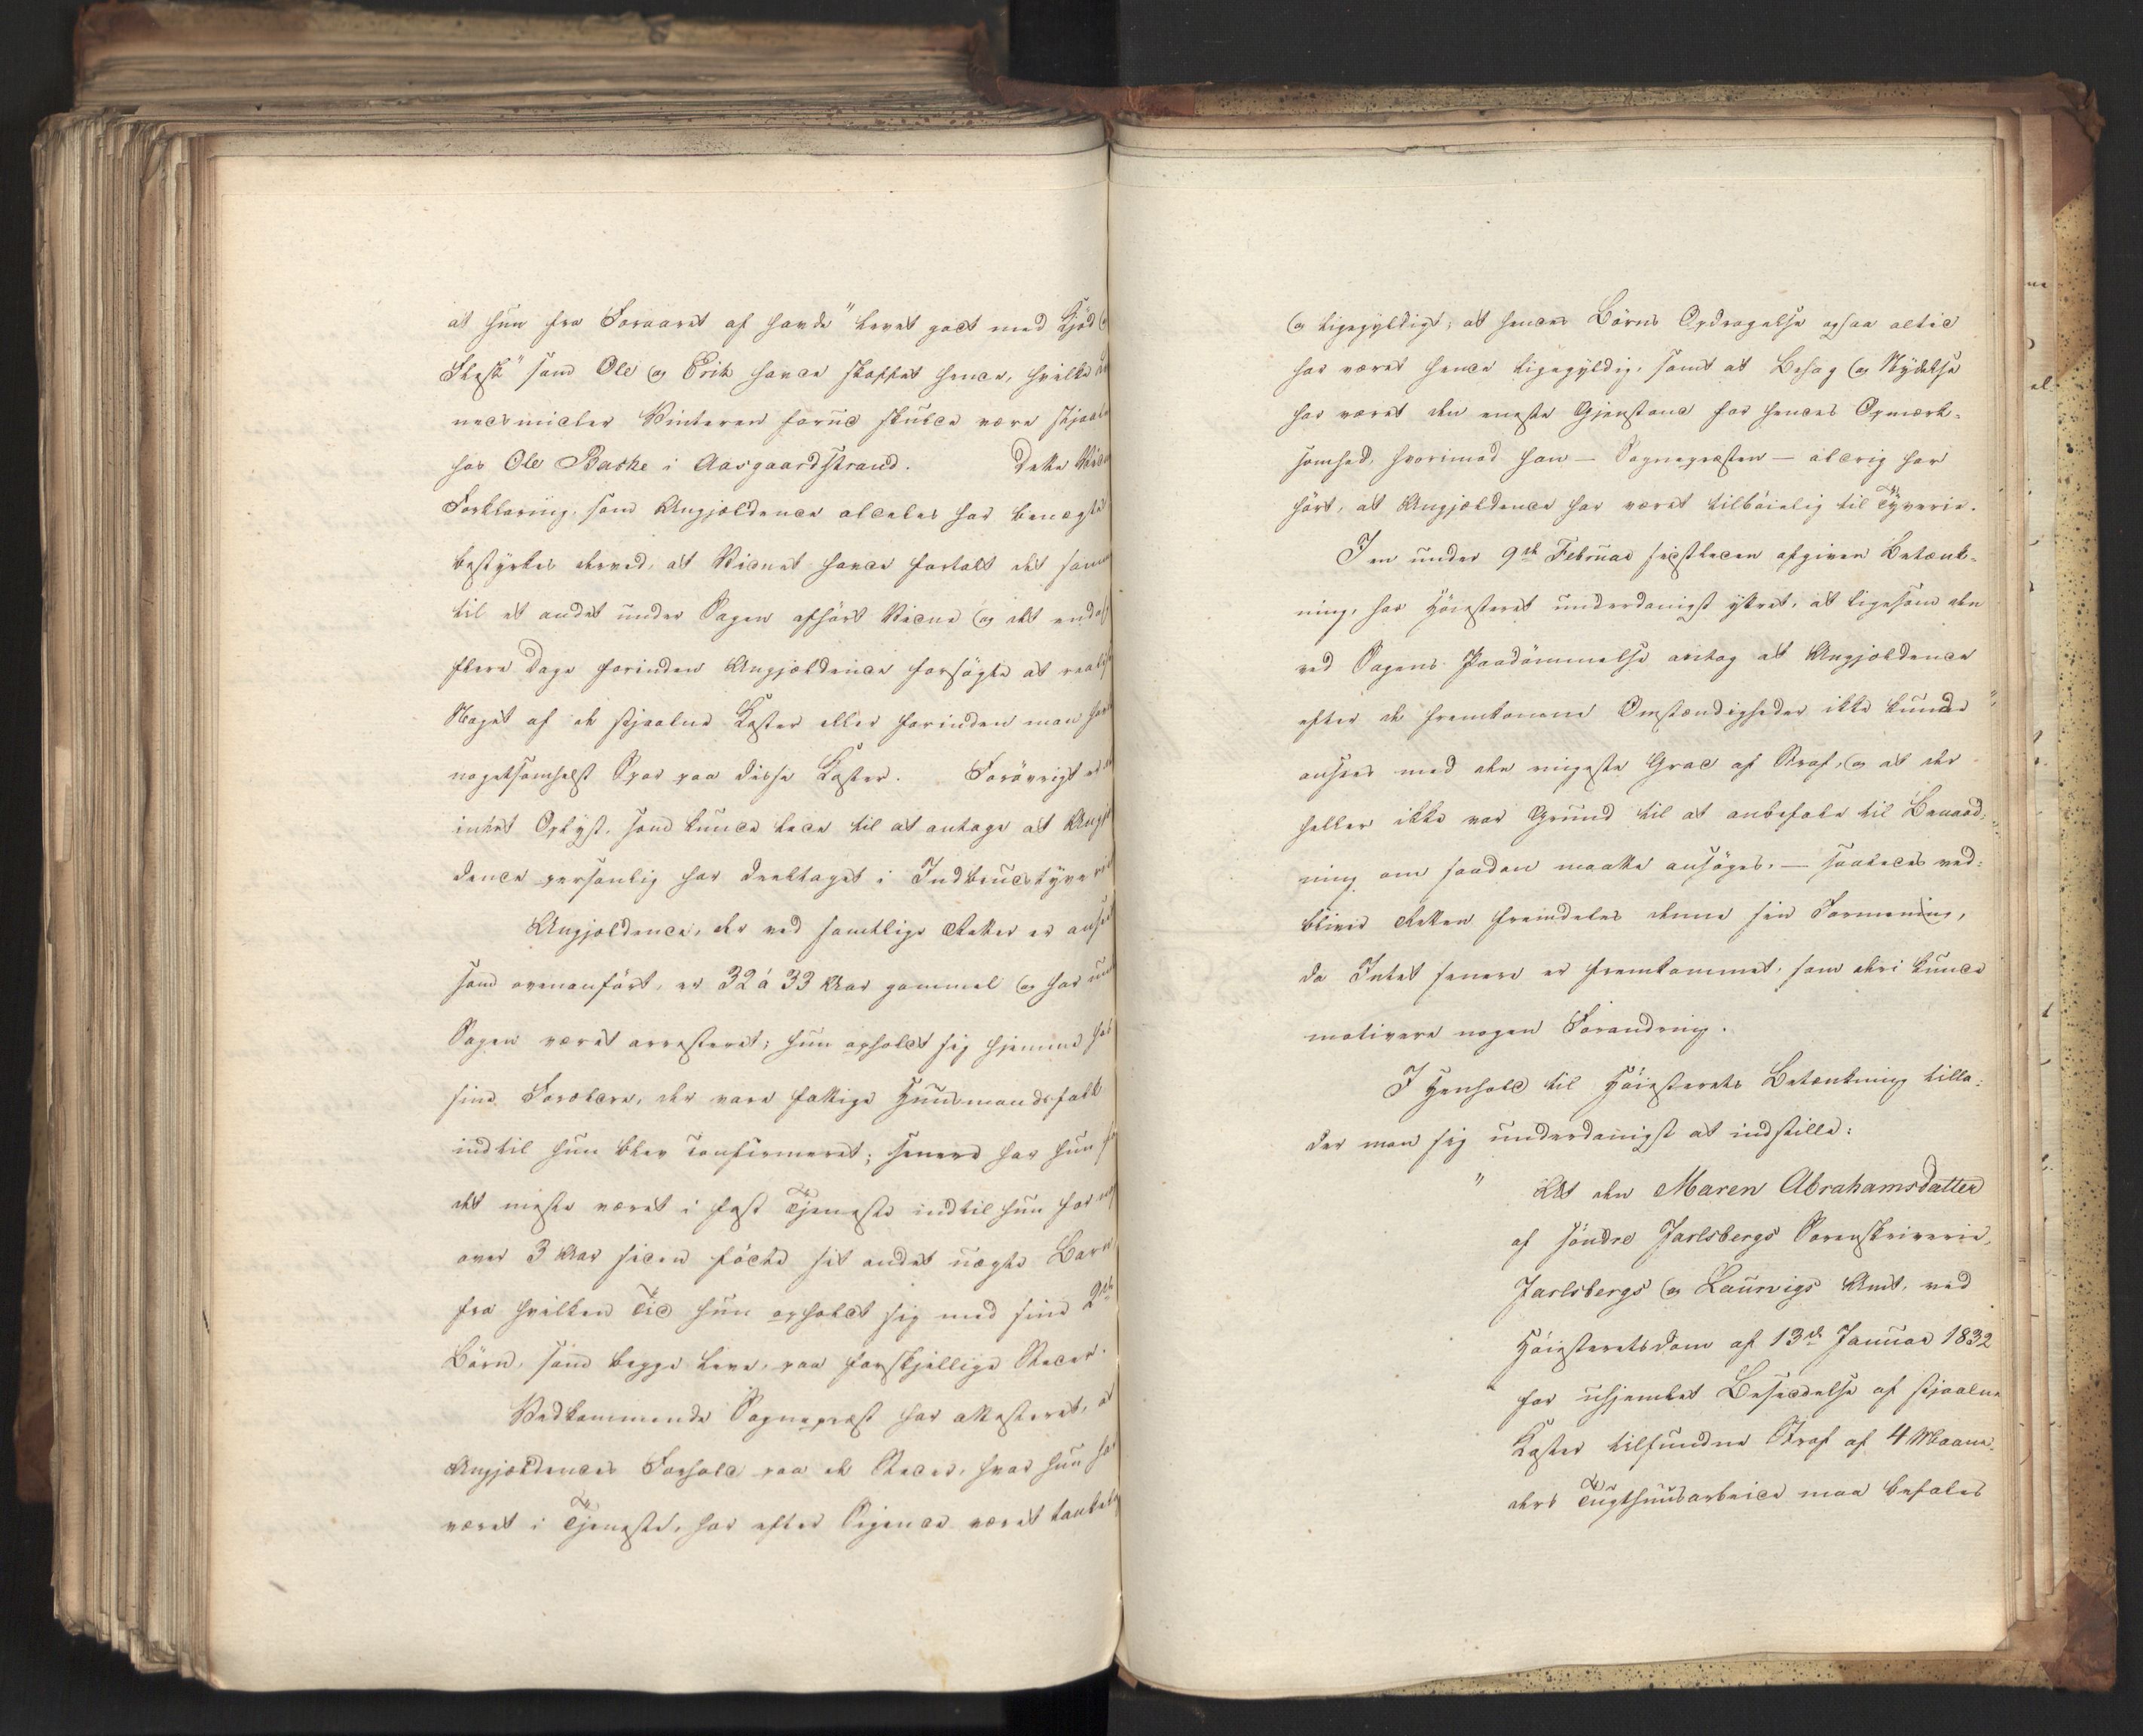 at hun fra Foraaret af havde "levet godt med Kjöd og
Flesk" som Ole og Erik havde skaffet hende, hvilke Lev
nedsmidler Vinteren forud skulde være stjaalne
hos Ole Bashe i Aasgaardstrand. Dette Vidnes
Forklaring, som Angjældende aldeles har benægtet
bestyrkes derved, at Vidnet havde fortalt det samme
til et andet under Sagen afhört Vidne og det endog
flere Dage forinden Angjældende forsögte at realise
Noget af de stjaalne Koster eller forinden man havde
nogetsomhelst Spor paa disse Koster. Forövrigt er
intet Oplyst, som kunde lede til at antage at Angjæl
dende personlig har deeltaget i Indbrudstyveriet
Angjældende, der ved samtlige Retter er anseet
som ovenanfört, er 32 á 33 Aar gammel og har under
Sagen været arresteret; hun opholdt sig hjemme hos
sine Forældre, der vare fattige Huusmandsfolk
indtil hun blev confirmeret; senere har hun for
det meste været i fast Tjeneste indtil hun for noget
over 3 Aar siden födte sit andet uægte Barn
fra hvilken Tid hun opholdt sig med sine 2de
Börn, som begge leve, paa forskjellige Steder.
Vedkommende Sognepræst har attesteret, at
Angjældendes Forhold paa de Steder, hvor hun har
været i Tjeneste, har efter Sigende været tankelöst
og ligegyldigt; at hendes Börns Opdragelse ogsaa altid
har været hende ligegyldig, samt at Besøg og Nydelse
har været den eneste Gjenstand for hendes Opmærk-
somhed, hvorimod han — Sognepræsten — aldrig har
hört, at Angjældende har været tilböielig til Tyverie.
I en under 9de Februar sidstleden afgiven Betænk-
ning, har Höiesteret underdanigst yttret, at ligesom den
ved Sagens Paadömmelse antog at Angjældende
efter de fremkomne Omstændigheder ikke kunde
ansees med den ringeste Grad af Straf, og at der
heller ikke var Grund til at anbefale til Benaad-
ning om saadan maatte ansöges. — saaledes ved-
bliver Retten fremdeles denne sin Formening,
da Intet senere er fremkommet, som deri kunde
motivere nogen Forandring.
I Henhold til Höiesterets Betænkning tilla-
der man sig underdanigst at indstille:
" At den Maren Abrahamsdatter
af söndre Jarlsbergs Sorenskriverie,
Jarlsbergs og Laurvigs Amt, ved
Höiesteretsdom af 13de Januar 1832
for uhjemlet Besiddelse af stjaalne
Koster tilfundne Straf af 4 Maane-
ders Tugthuusarbeide maa befales